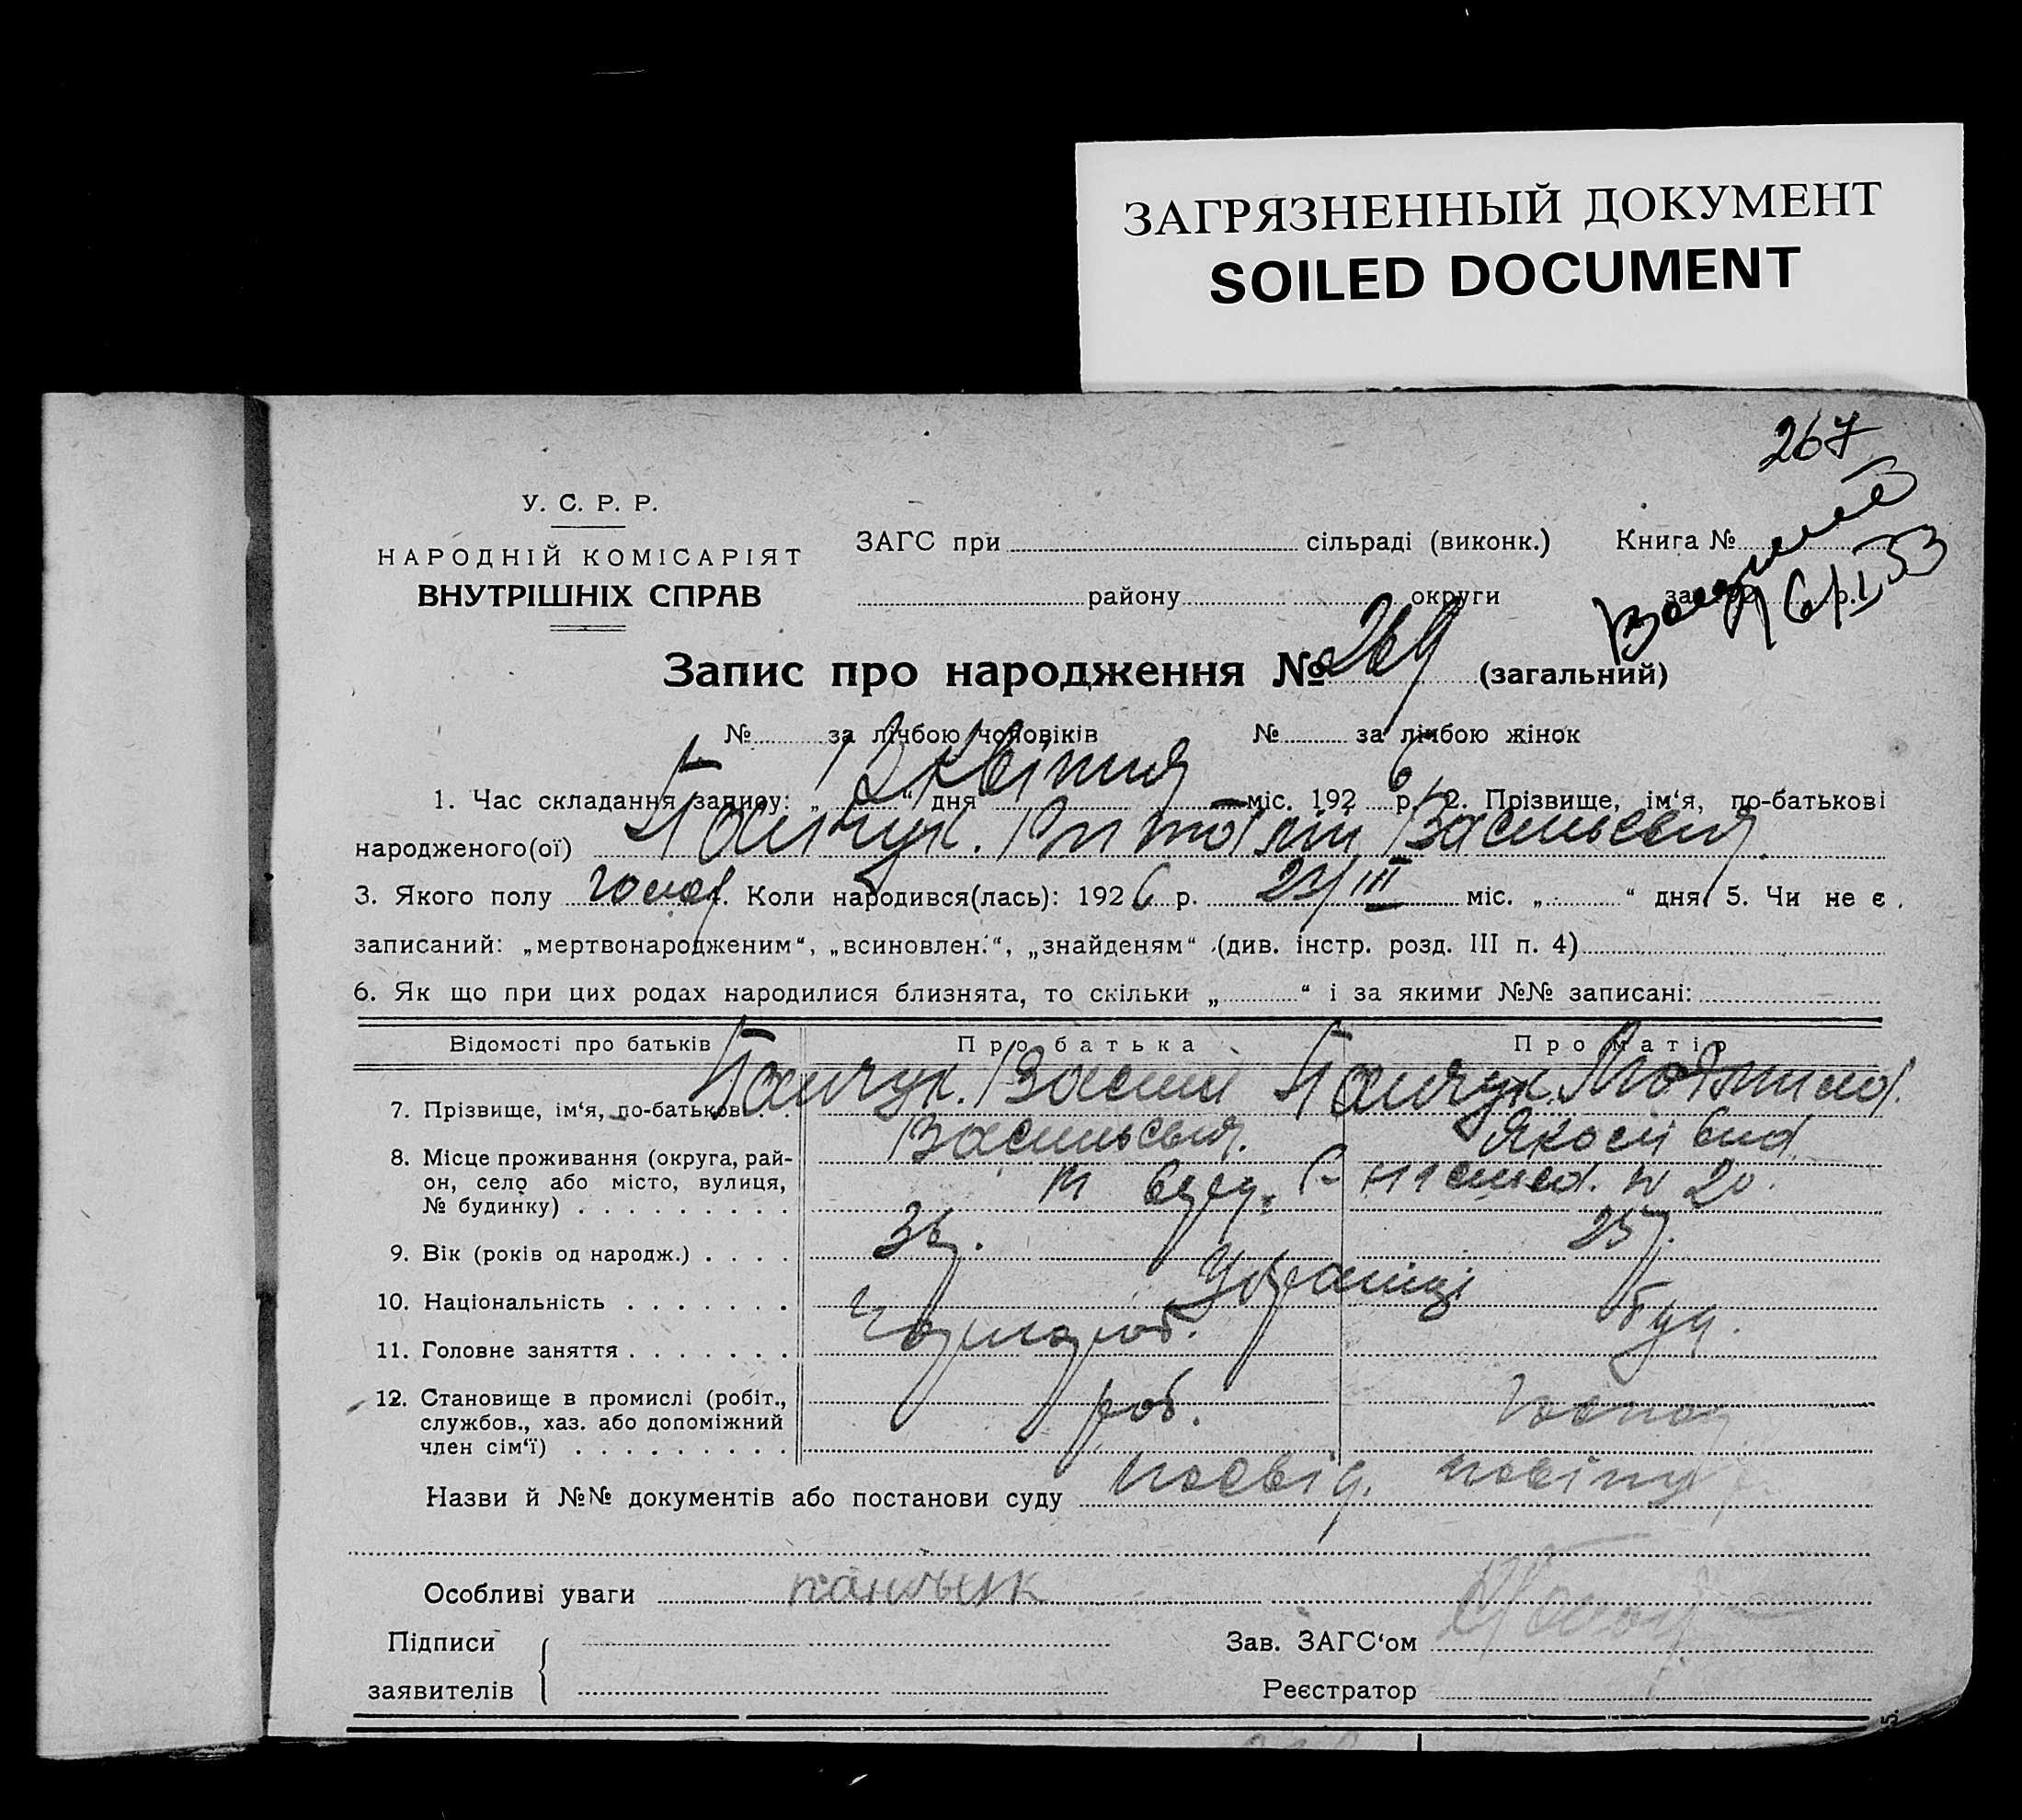 ЗАГРЯЗНЕННЫЙ ДОКУМЕНТ
SOILED DOCUMENT
267
У. С. Р. Р.
НАРОДНІЙ КОМІСАРІЯТ
ВНУТРІШНІХ СПРАВ
ЗАГС при сільраді (виконк.) Книга №
району округи за р.
Запис про народження № 269 (загальний)
№ за лічбою чоловіків № за лічбою жінок
1. Час складання запису: „ 2 “ дня квітня міс. 192 6 р. 2. Прізвище, ім‘я, по-батькові
народженого(ої) Панчук Васильевич
3. Якого полу чолов. Коли народився(лась): 192 6 р. 23/III міс. „ “ дня 5. Чи не є
записаний: „мертвонародженим“, „всиновлен.“, „знайденям“ (див. інстр. розд. III п. 4)
6. Як що при цих родах народилися близнята, то скільки „ “ і за якими №№ записані:
Відомості про батьків Про батька Про матір
7. Прізвище, ім‘я, по-батькові Панчук Василь Панчук
Васильевич Яковлівна
8. Місце проживання (округа, рай-
он, село або місто, вулиця,
№ будинку) № 20.
9. Вік (років од народж.) 25р.
10. Національність Українці
11. Головне заняття Чорнороб.
12. Становище в промислі (робіт., роб.
службов., хаз. або допоміжний
член сім‘ї)
Назви й №№ документів або постанови суду посвід.
Особливі уваги панчук
Підписи Зав. ЗАГС‘ом
заявителів Реєстратор